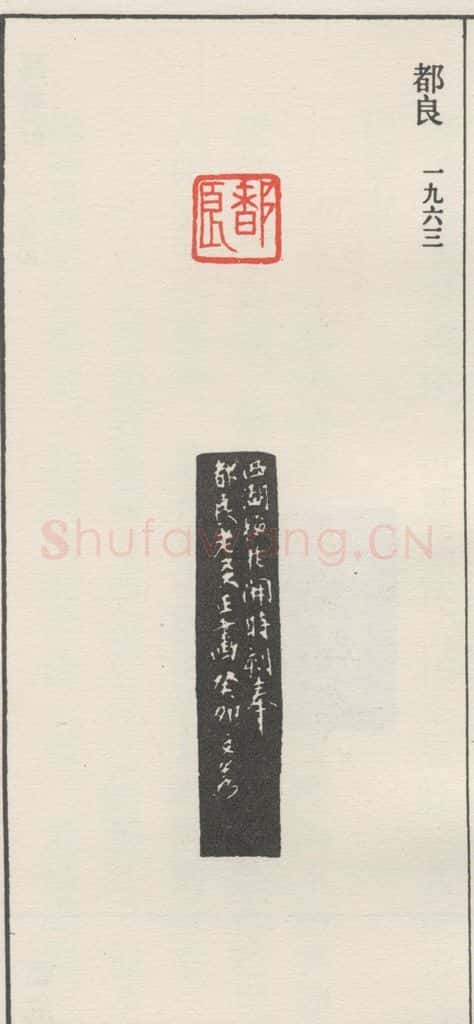 都良
一九六三
都良
西湖楊花開時刻奉
都良老友正畫癸卯文蒼
Shufawang.CN